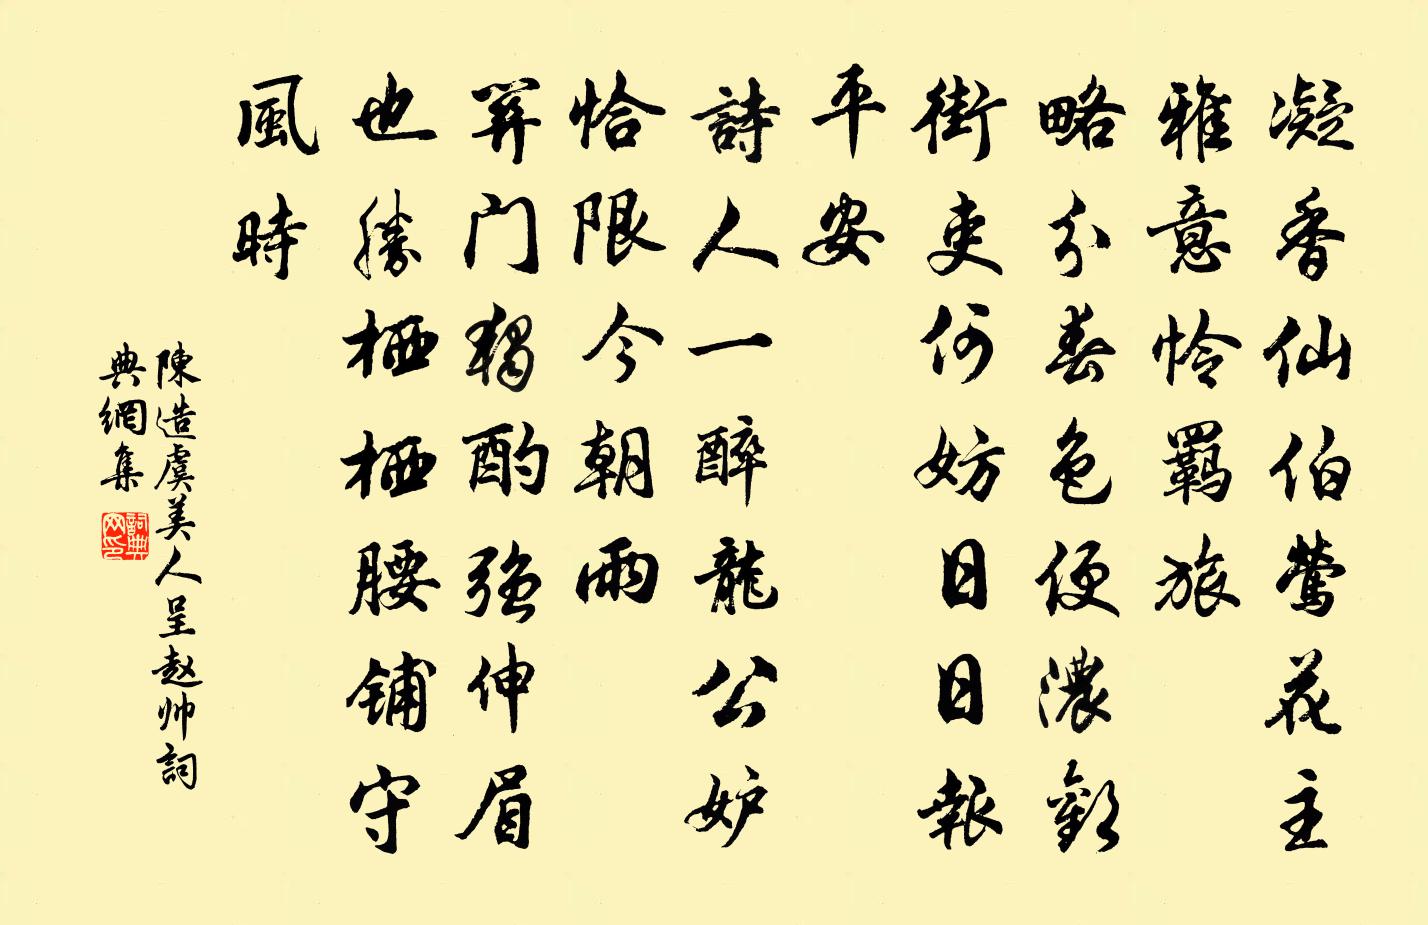 凝香仙伯鶯花主
雅意怜羈旅
略分春色便濃歡
街吏何妨日日報
平安
詩人一醉龍公妒
恰限今朝雨
閉门獨酌强伸眉
也勝栖栖腰铺守
風時
陳造虞美人呈赵帅詞
典網集
詞典网印